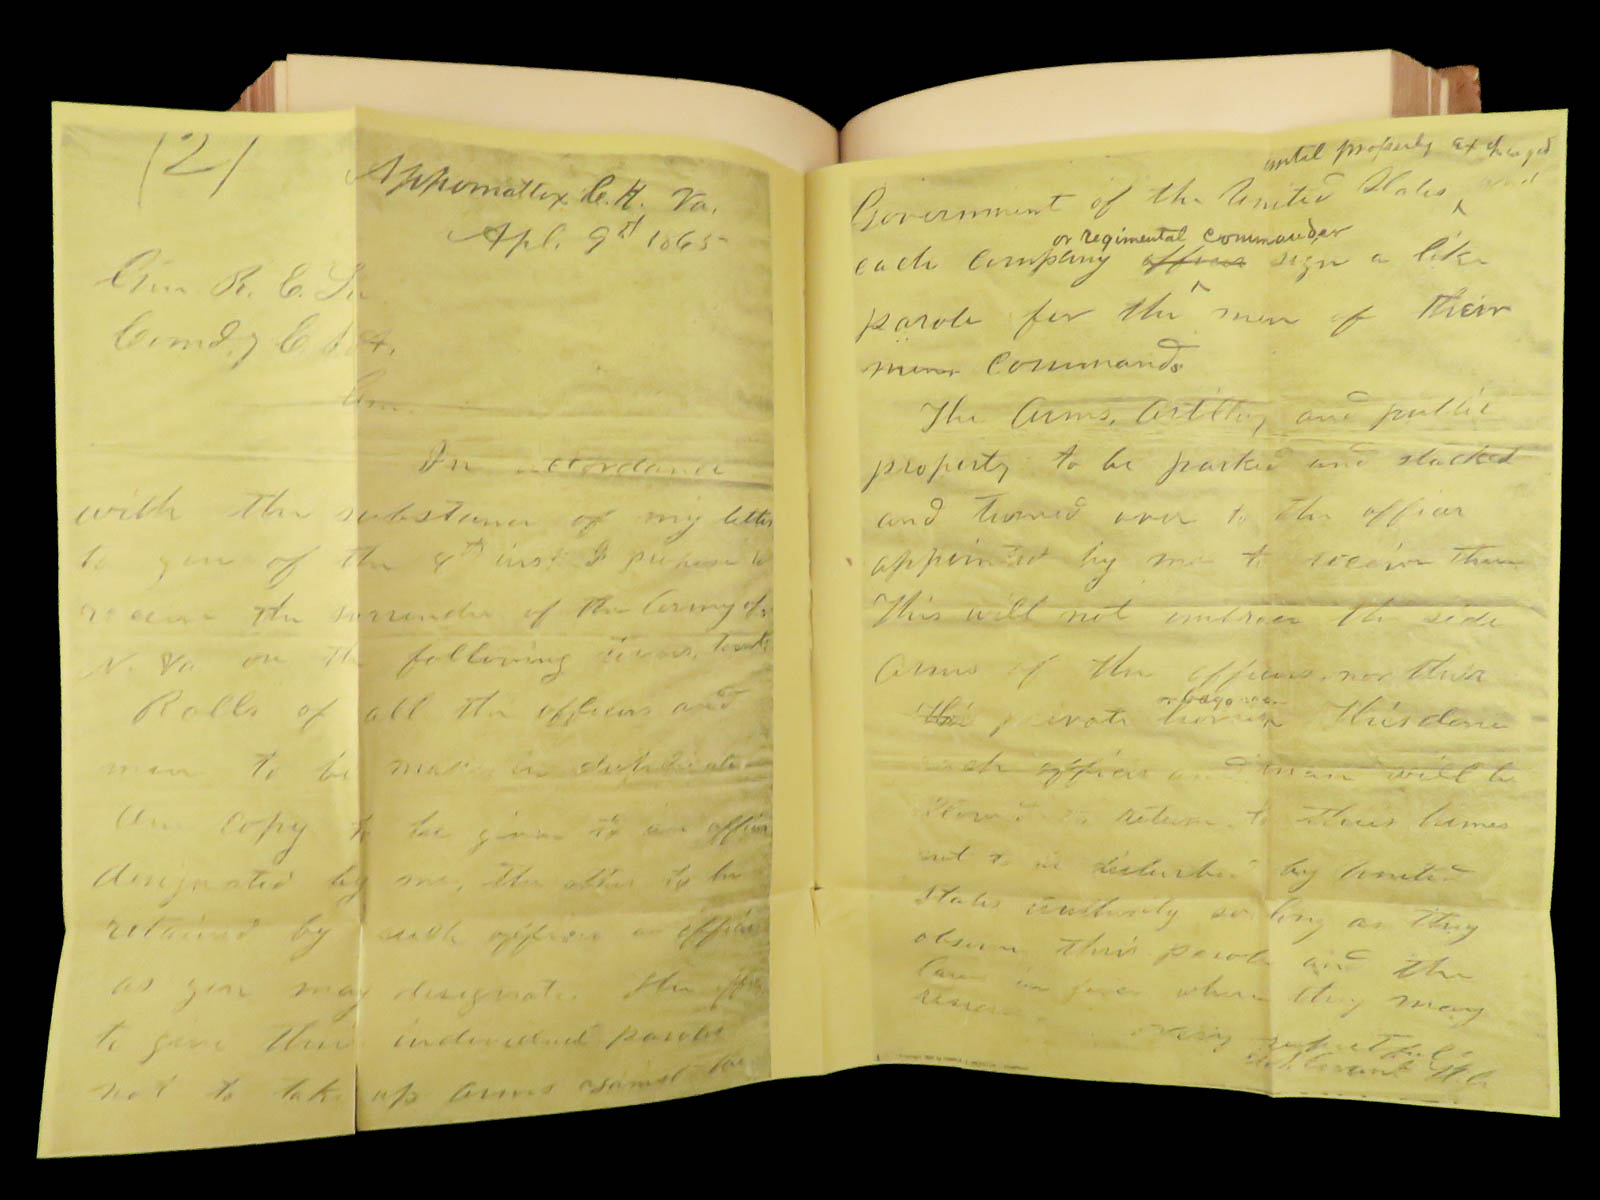 (2)
Appomattox C.H. Va.
Apl. 9th 1865
Gen R. E. Lee
Comd.g C.S.A.
Gen.
In accordance
with the substance of my letter
to you of the 8th inst. I propose to
receive the surrender of the Army of
N. Va on the following terms, towit:
Rolls of all the officers and
men to be made in duplicate
One copy to be given to an officer
designated by me, the other to be
retained by such officer or officers
as you may designate. The officers
to give their individual paroles
not to take up arms against the
until properly exchanged
Government of the United States and
or regimental commander
each company officer sign a like
parole for the men of their
commands
The Arms, Artillery and public
property to be parked and stacked
and turned over to the officer
appointed by me to receive them
This will not embrace the side
Arms of the officers, nor their
or baggage
private horses This done
each officer and man will be
allowed to return to their homes
not to be disturbed by United
States authority so long as they
observe their parole and the
laws in force where they may
reside
Very respectfully
U.S. Grant Lt Gl